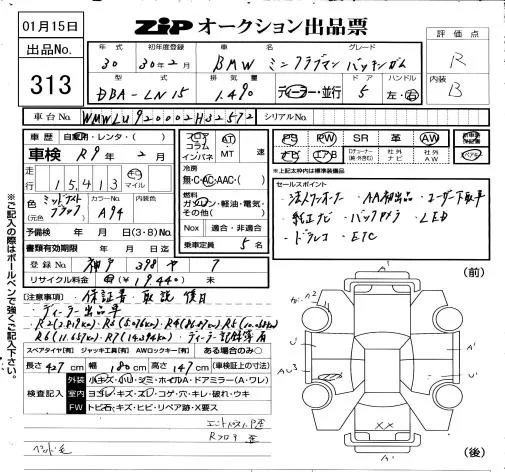 01月15日
ZIP オークション出品票
出品No.
313
年式 初年度登録 車名 グレード
30 30年2月 BMW ミニクラブマン バッキンガム
型式 排気量 ドア ハンドル
DBA-LN15 1.490 ディーラー・並行 5 左・右
評価点
R
内装
B
車台No. WMWLU920002H32572 シリアルNo.
車歴 自家用・レンタ・( )
車検 R9年2月
走行 15,413 キロ マイル
フロア コラム インパネ AT MT 速
冷房
無・C・AC・AAC・( )
燃料
ガソリン・軽油・電気・その他( )
NOx 適合・非適合
乗車定員 5名
PS PW SR 革 AW
ナビ エアB 社外ナビ 社外AW
※上記太枠内は標準装備品
色 ミッドナイトブラック カラーNo. A94 内装色
(元色)
予備検 年 月 日(3・8)No.
書類有効期限 年 月 日迄
登録No. 神戸 398 や 7
リサイクル料金 (¥19.440)
セールスポイント
・法人ワンオーナー ・AA初出品 ・ユーザー下取車
・純正ナビ ・バックカメラ ・LED
・ドラレコ ・ETC
注意事項
保証書 取説 後日
・ディーラー出品車
R6(11.657km) R7(14.394km) ディーラー記録簿有
スペアタイヤ[有] ジャッキ工具[有] AWロックキー[有] ある場合のみ○
長さ 427cm 幅 180cm 高さ 147cm (車検証上の寸法)
検査記入
外装 小キズ・小U・シミ・ホイルA・ドアミラー(A・ワレ)
室内 ヨゴレ・キズ・スレ・コゲ・穴・キレ・破れ・ウキ
FW トビ石・キズ・ヒビ・リペア跡・X要ス
※ご記入の際はボールペンで強くご記入下さい。
(前)
(後)
A'
U'
U'
AU3
A'
XX
A'